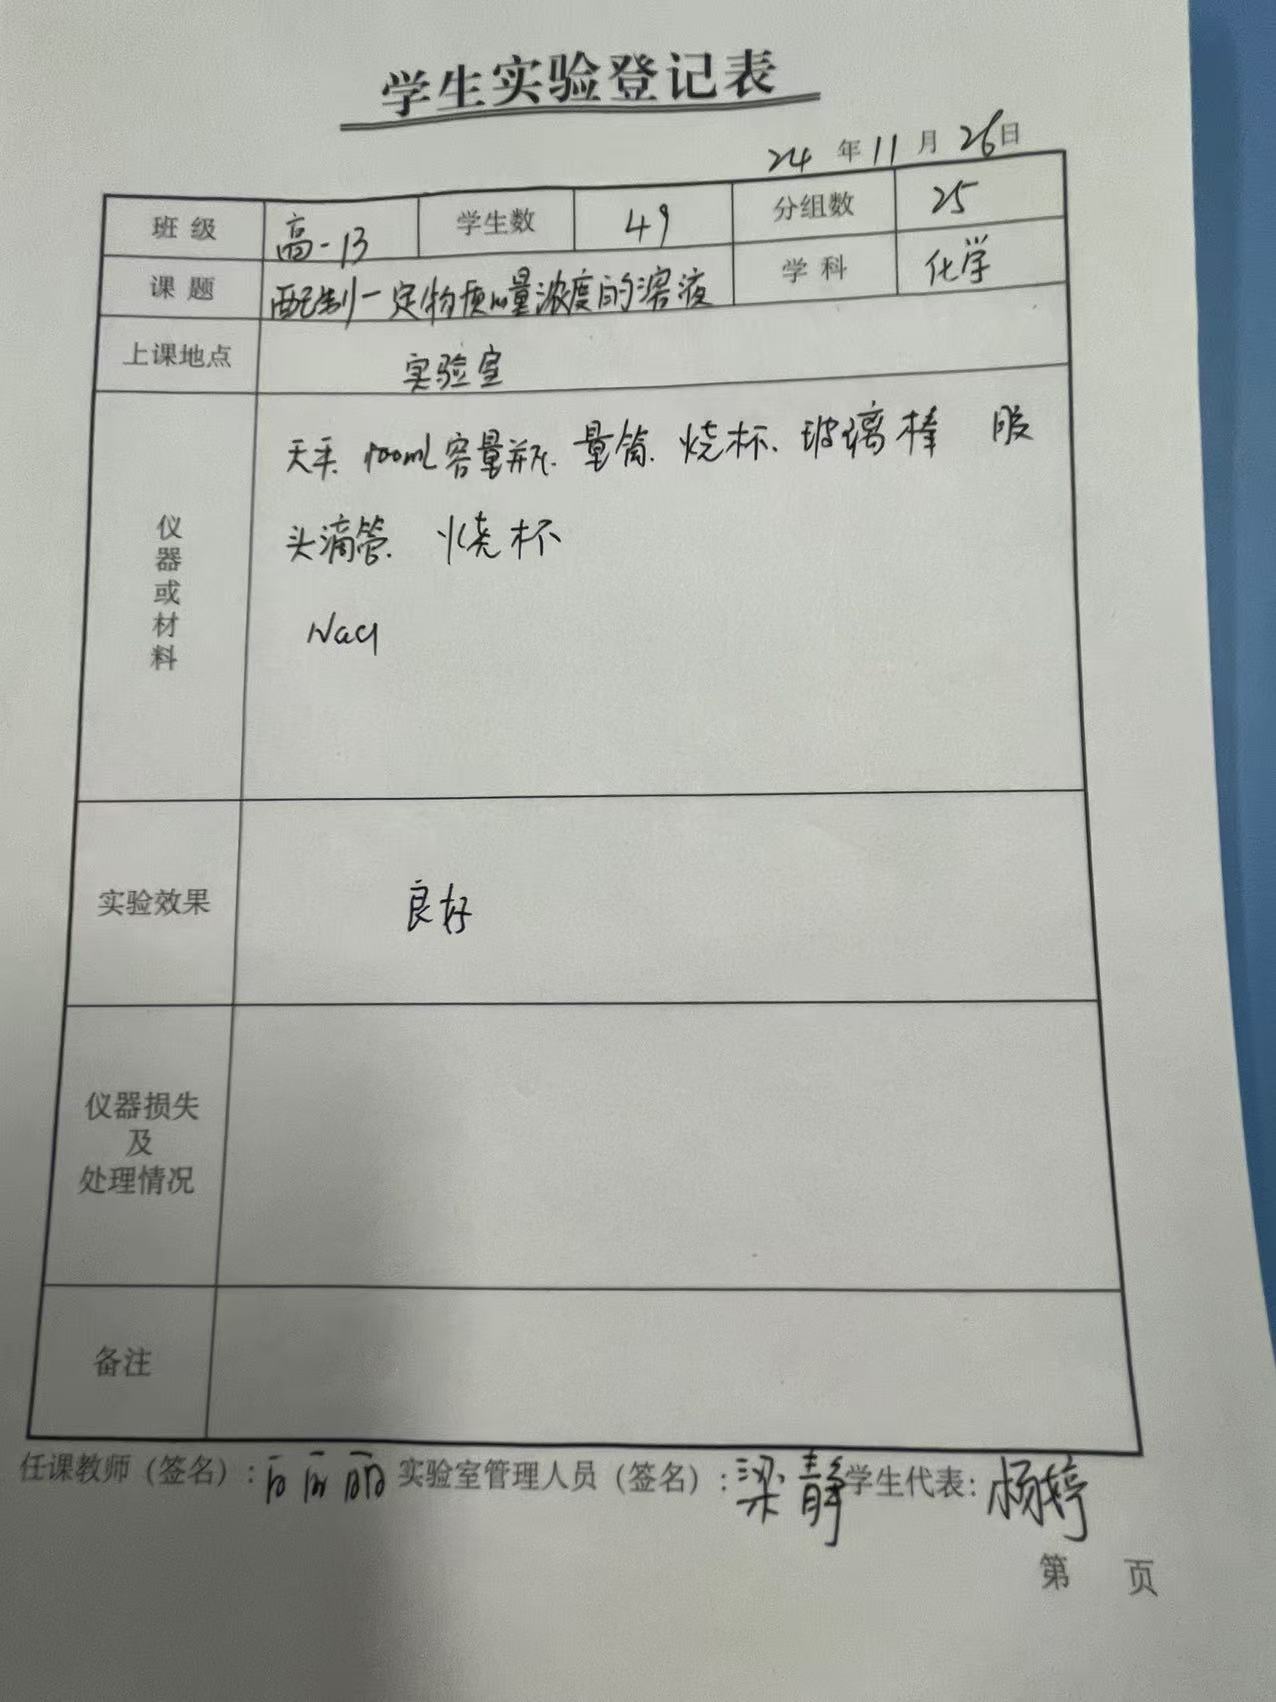 学生实验登记表
24年11月26日
班级 高一13 学生数 49 分组数 25
课题 配制一定物质的量浓度的溶液 学科 化学
上课地点 实验室
仪器或材料
天平 100mL容量瓶. 量筒. 烧杯. 玻璃棒 胶
头滴管. 烧杯
NaCl
实验效果 良好
仪器损失
及
处理情况
备注
任课教师（签名）: 实验室管理人员（签名）: 梁静 学生代表: 杨婷
第 页